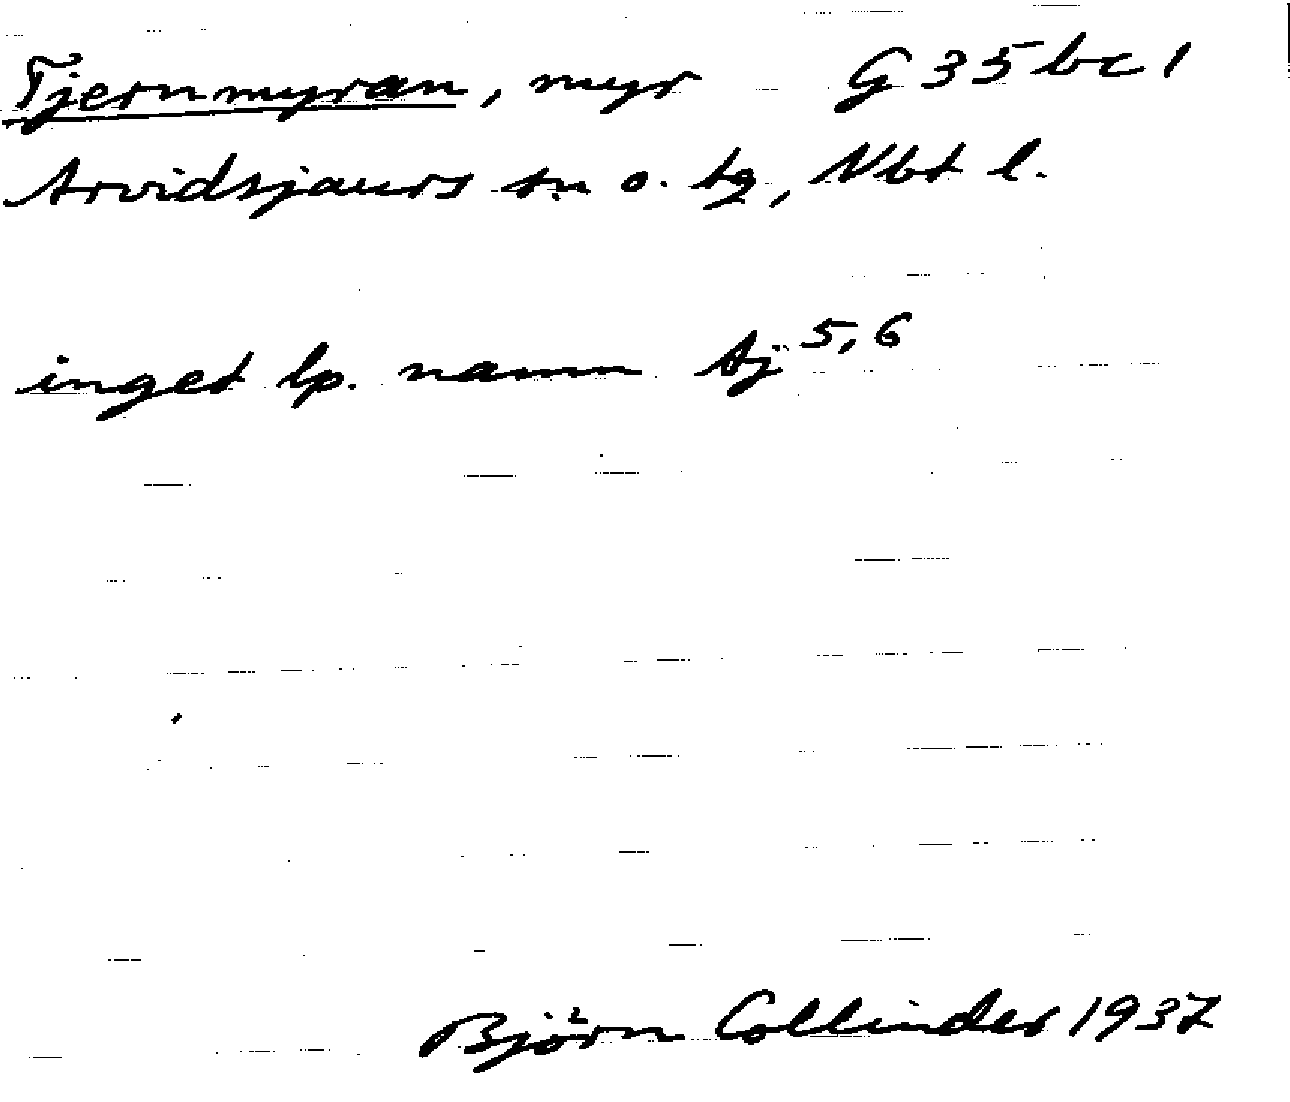 Tjernmyran, myr G 35 bc 1
Arvidsjaurs sn o. tg, Nbt l.
inget lp. namn Aj 5, 6
Björn Collinder 1937